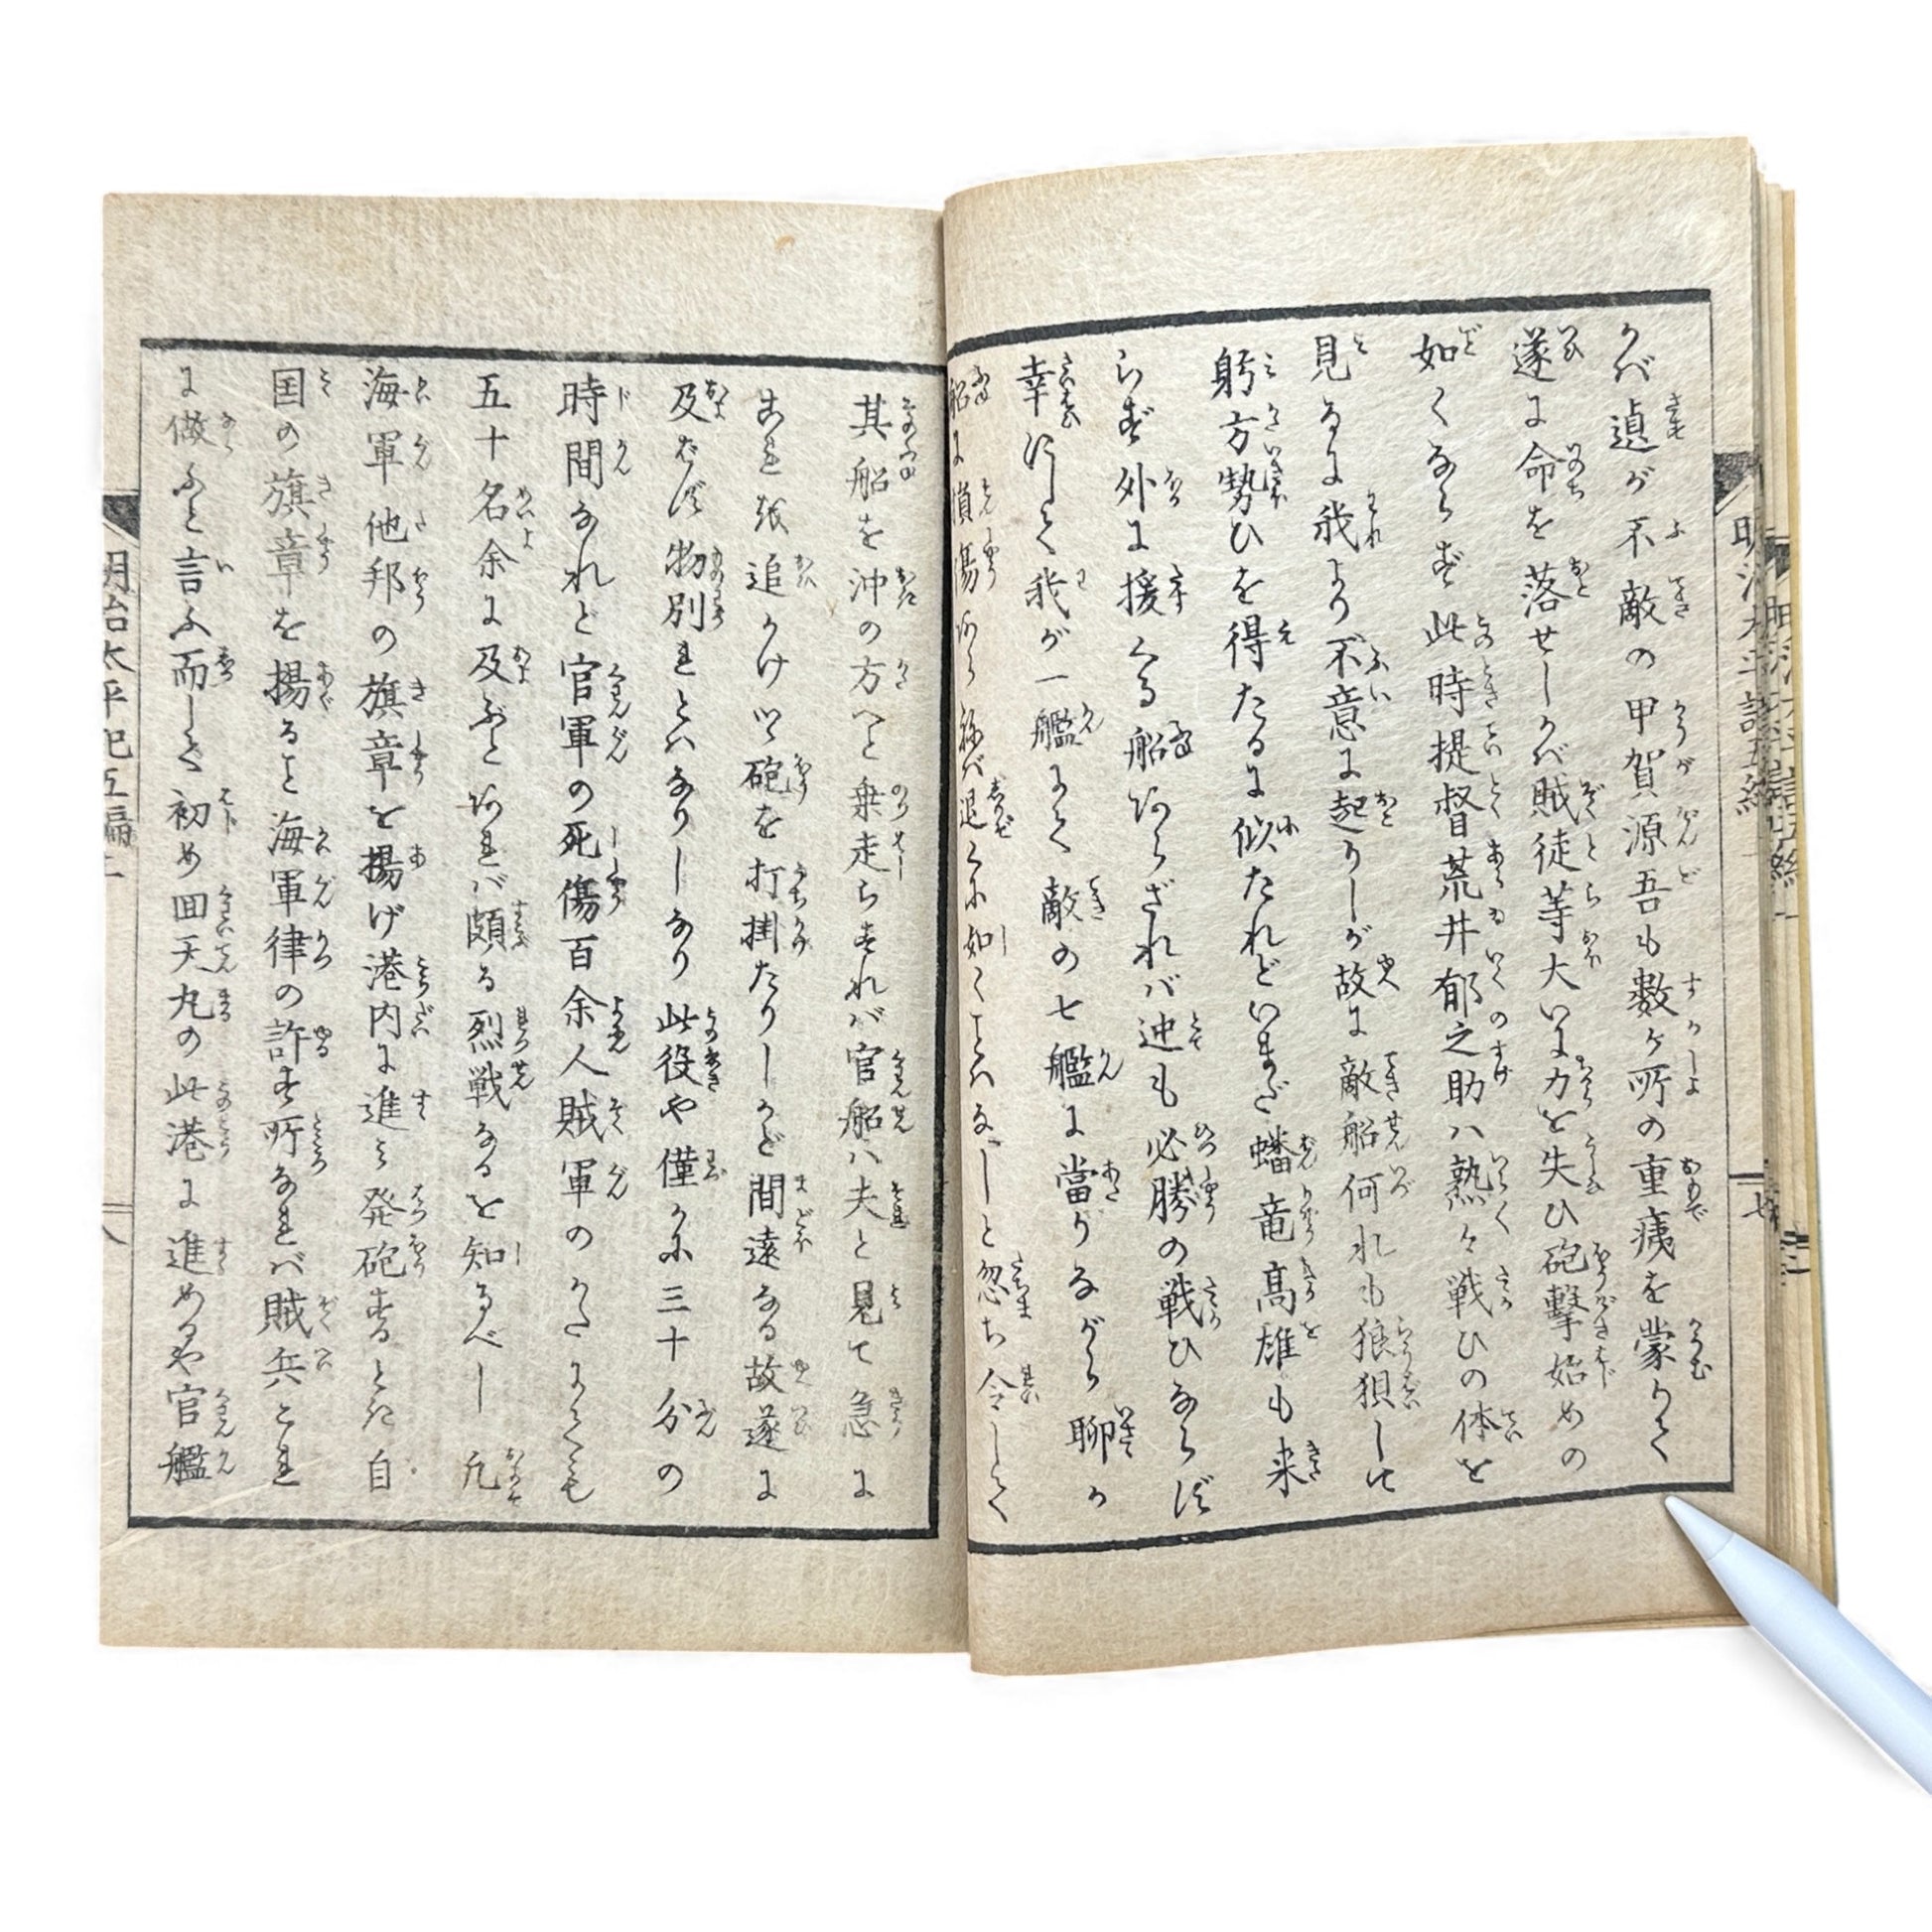 かバ遉が不敵の甲賀源吾も数ヶ所の重痍を蒙りて
遂に命を落せしかバ賊徒等大いに力を失ひ砲撃始めの
如くならず此時提督荒井郁之助ハ熟々戦ひの体を
見るに我より不意に起りしが故に敵船何れも狼狽して
躬方勢ひを得たるに似たれどいまだ蟠竜高雄も来
らず外に援くる船あらざれバ迚も必勝の戦ひならず
幸にして我が一艦にて敵の七艦に當りながら聊か
船に損傷あらねバ退くに如くことハなしと忽ち令して
其船を沖の方へと乗走らすれバ官船ハ夫と見て急に
これを追かけツ砲を打掛たりしかど間遠なる故遂に
及ばず物別れとハなりしなり此役や僅かに三十分の
時間なれど官軍の死傷百余人賊軍のかたにても
五十名余に及ぶとあれバ頗る烈戦なるを知るべし凡
海軍他邦の旗章を揚げ港内に進み発砲するとき自
国の旗章を揚ると海軍律の許す所なれバ賊兵これ
に倣ふと言ふ而して初め回天丸の此港に進めるや官艦
明治太平記五編二
八
明治太平記五編
七